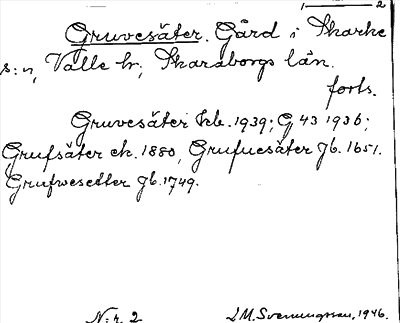 1 2
Gruvesäter. Gård i Skarke
s:n, Valle hr, Skaraborgs län.
forts.
Gruvesäter kb. 1939; G 43 1936;
Grufsäter ek. 1880, Grufuesäter Jb. 1651.
Grufwesetter Jb. 1749.
N:r 2
I.M. Svenningsson, 1946.